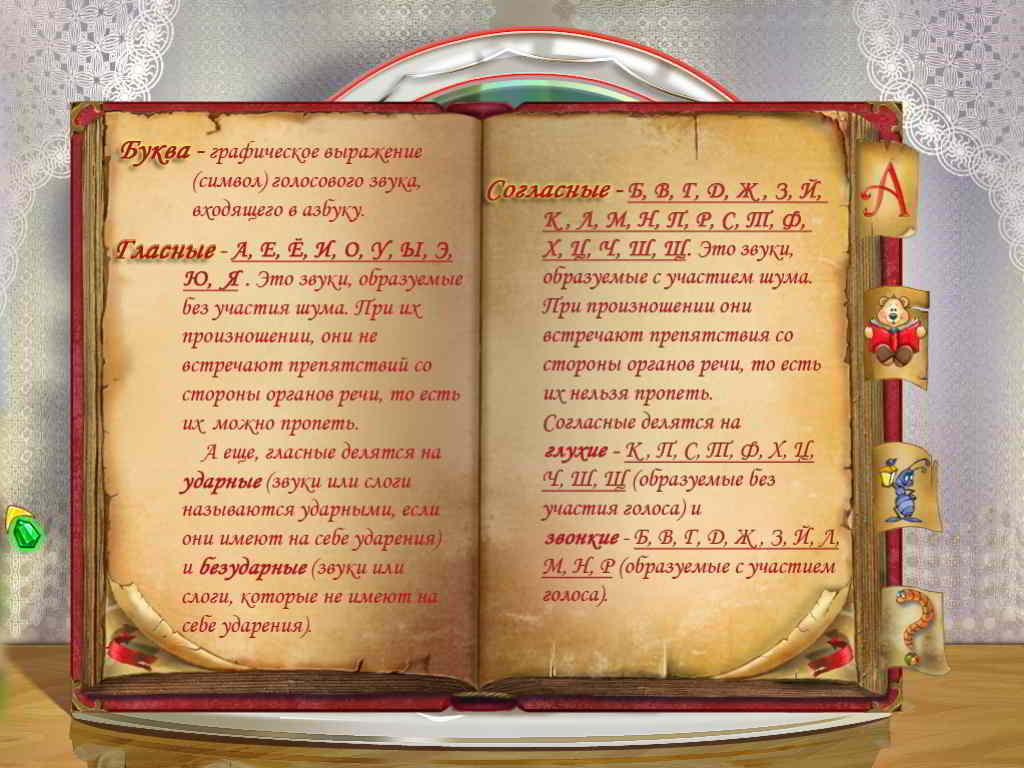 Буква - графическое выражение
(символ) голосового звука,
входящего в азбуку.
Гласные - А, Е, Ё, И, О, У, Ы, Э,
Ю, Я . Это звуки, образуемые
без участия шума. При их
произношении, они не
встречают препятствий со
стороны органов речи, то есть
их можно пропеть.
А еще, гласные делятся на
ударные (звуки или слоги
называются ударными, если
они имеют на себе ударения)
и безударные (звуки или
слоги, которые не имеют на
себе ударения).
Согласные - Б, В, Г, D, Ж , З, Й,
К , Л, М, Н, П, Р, С, Т, Ф,
Х, Ц, Ч, Ш, Щ. Это звуки,
образуемые с участием шума.
При произношении они
встречают препятствия со
стороны органов речи, то есть
их нельзя пропеть.
Согласные делятся на
глухие - К , П, С, Т, Ф, Х, Ц,
Ч, Ш, Щ (образуемые без
участия голоса) и
звонкие - Б, В, Г, D, Ж , З, Й, Л,
М, Н, Р (образуемые с участием
голоса).
А
?